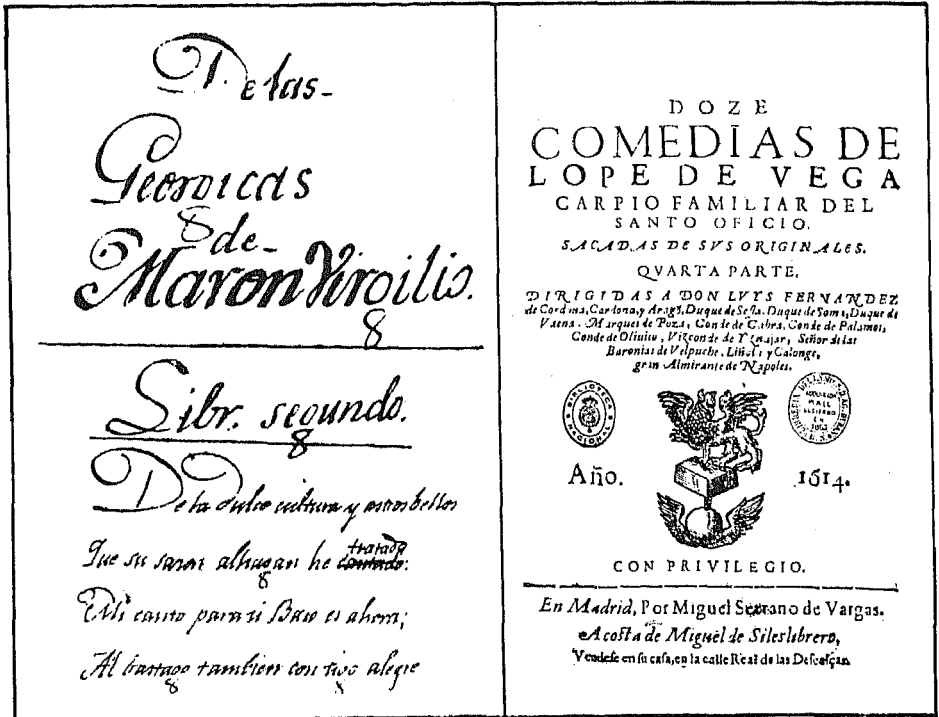 De las-
Georgicas
de-
Maron Virgilio.
Libr. segundo.
De la dulce cultura y
Que su sazon alhagan he tratado:
Mi canto para ti Baco es ahora;
Al tambien con alegre
DOZE
COMEDIAS DE
LOPE DE VEGA
CARPIO FAMILIAR DEL
SANTO OFICIO.
SACADAS DE SVS ORIGINALES.
QVARTA PARTE.
DIRIGIDAS A DON LVYS FERNANDEZ
de Cordoua, Cardona, y Aragõ, Duque de Sessa, Duque de Soma, Duque de
Vaena, Marques de Poza, Conde de Cabra, Conde de Palamos,
Conde de Oliuito, Vizconde de Yznajar, Señor de las
Baronias de Velpuche, Liñola y Calonge,
gran Almirante de Napoles.
BIBLIOTECA
NACIONAL
Año. 1614.
CON PRIVILEGIO.
En Madrid, Por Miguel Serrano de Vargas.
A costa de Miguel de Siles librero,
Vendese en su casa, en la calle Real de las Descalças.